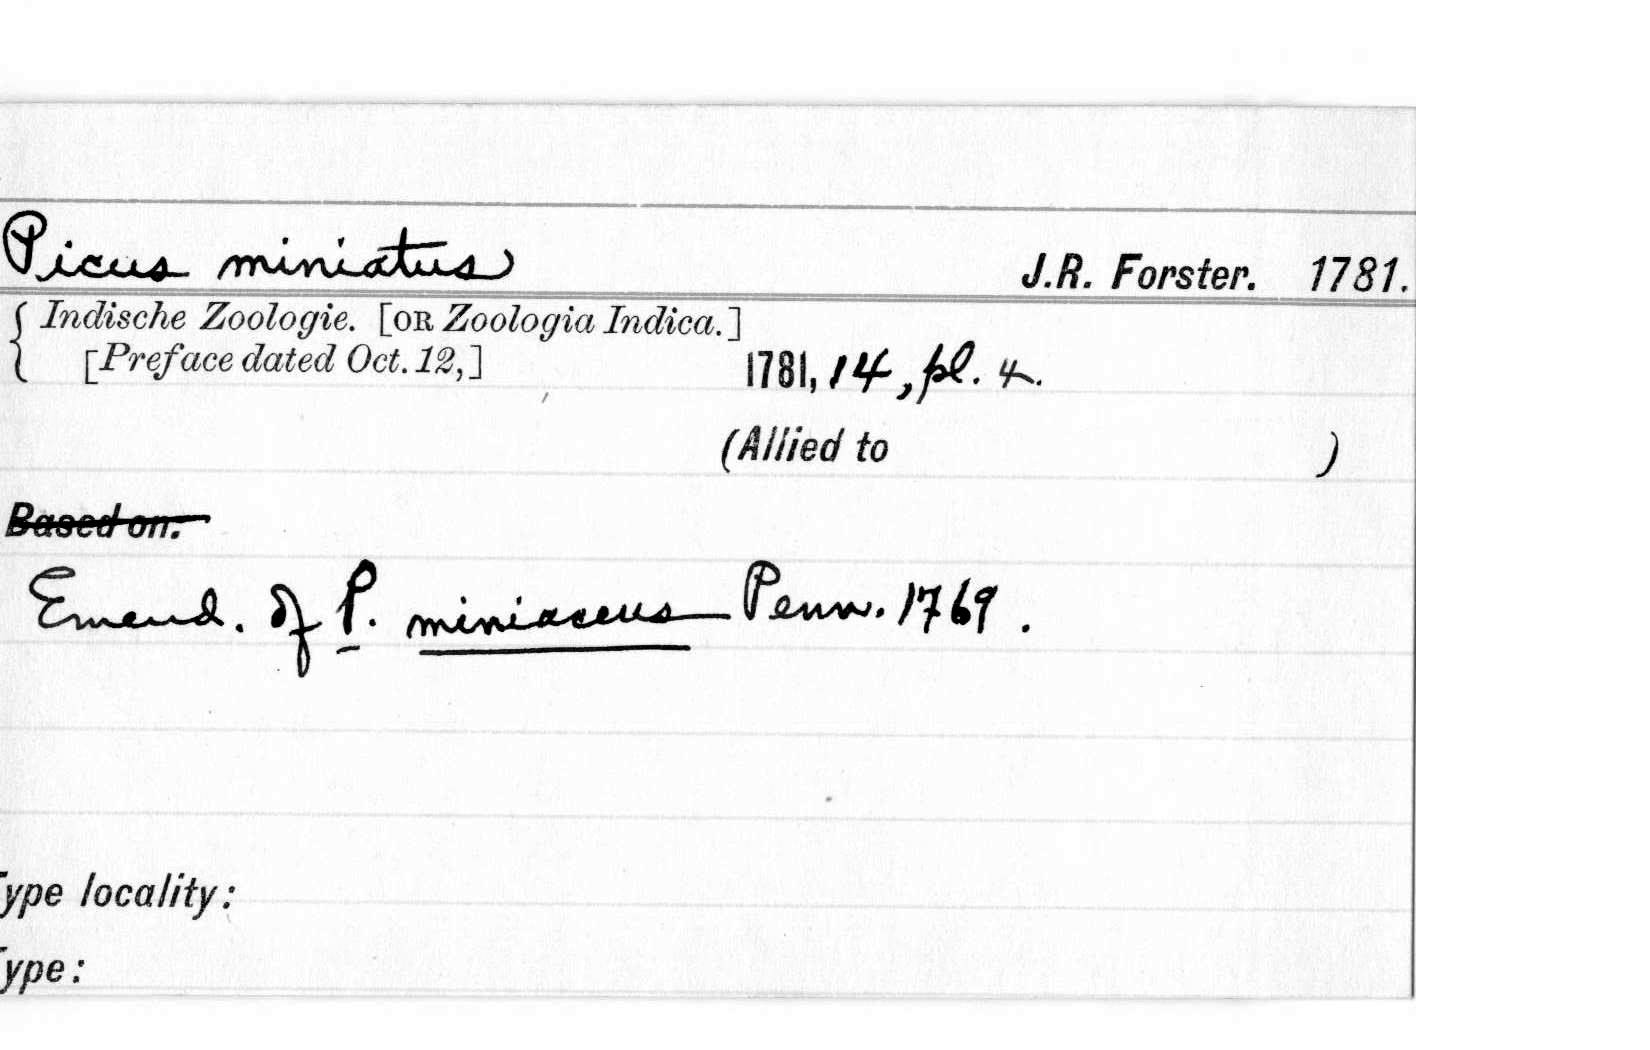 Picus miniatus J.R. Forster. 1781.
Indische Zoologie. [OR Zoologia Indica.]
[Preface dated Oct. 12,] 1781, 14, pl. 4.
(Allied to )
Based on.
Emend. of P. miniaceus Penn. 1769.
Type locality:
Type: